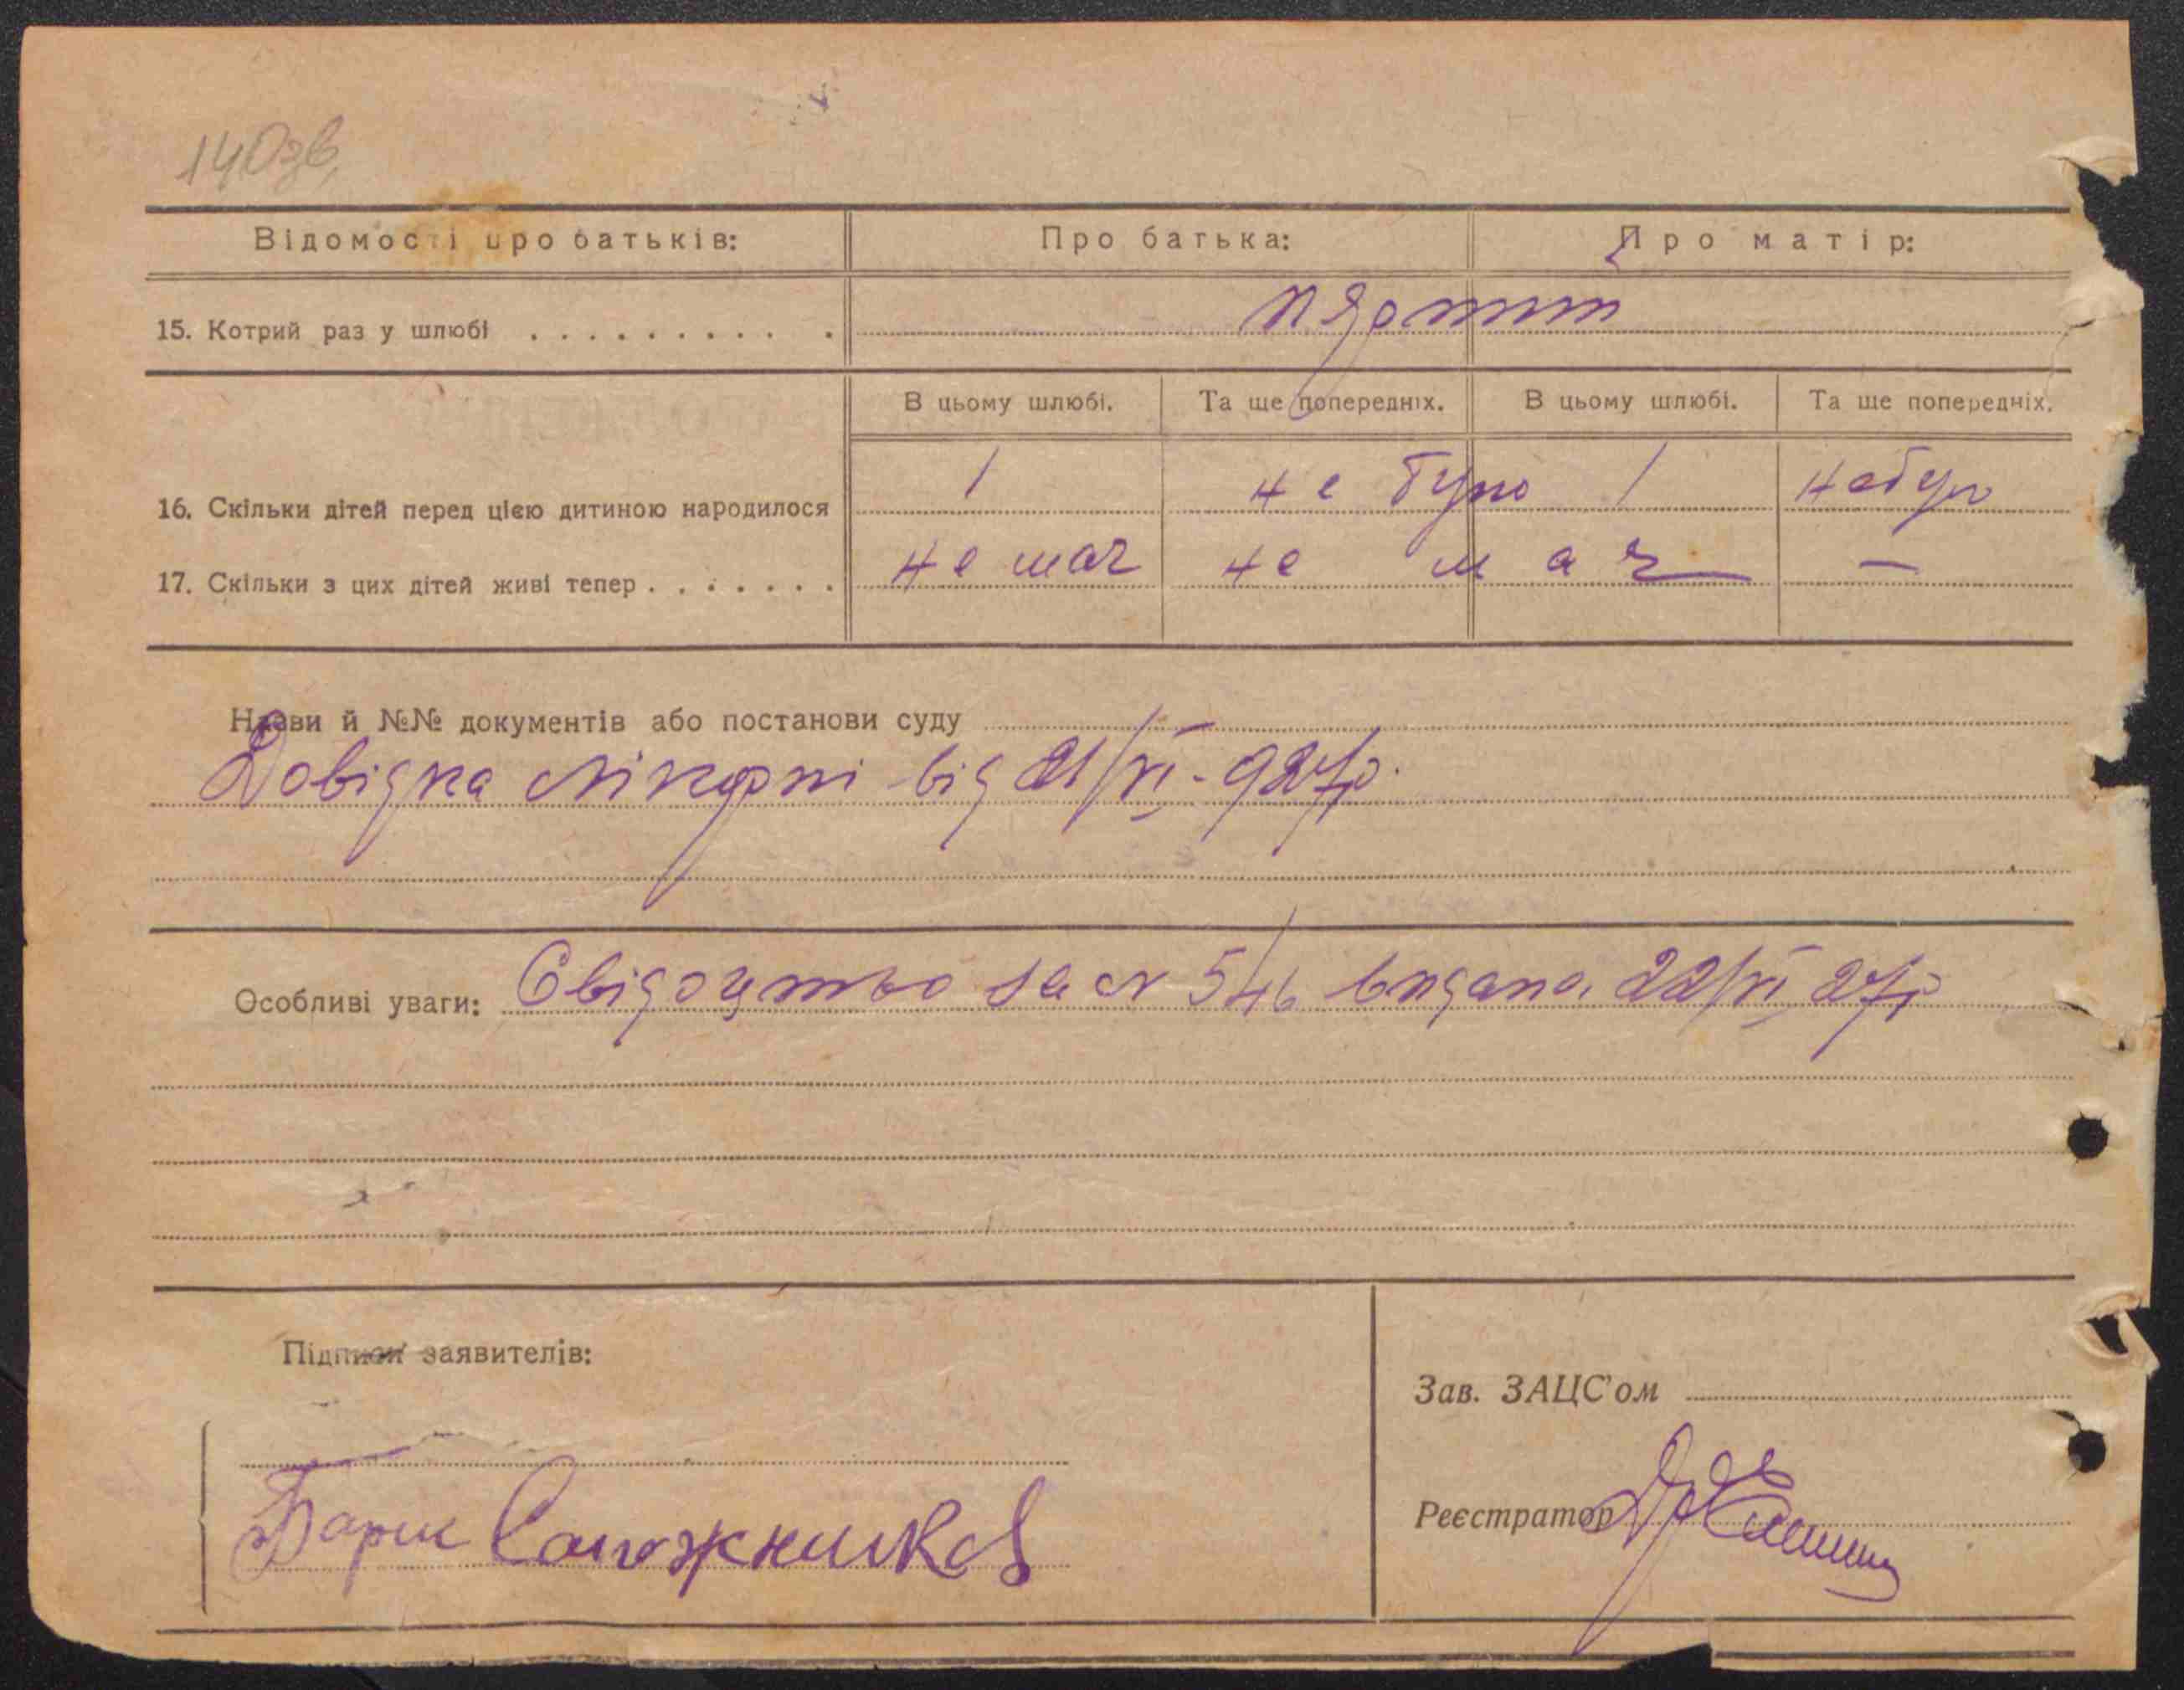 140зв.
Відомості про батьків: Про батька: Про матір:
15. Котрий раз у шлюбі . . . . . . . . . .
В цьому шлюбі. Та ще попередніх. В цьому шлюбі. Та ще попередніх.
16. Скільки дітей перед цією дитиною народилося 1 не було 1 небуло
17. Скільки з цих дітей живі тепер . . . . . . . не має не має —
Назви й №№ документів або постанови суду
Довідка лікарні від 21/VI-927р.
Особливі уваги: Свідоцтво за № 546 видана 22/VI 27р
Підписи заявителів:
Зав. ЗАЦС'ом
Реєстратор
Сапожников